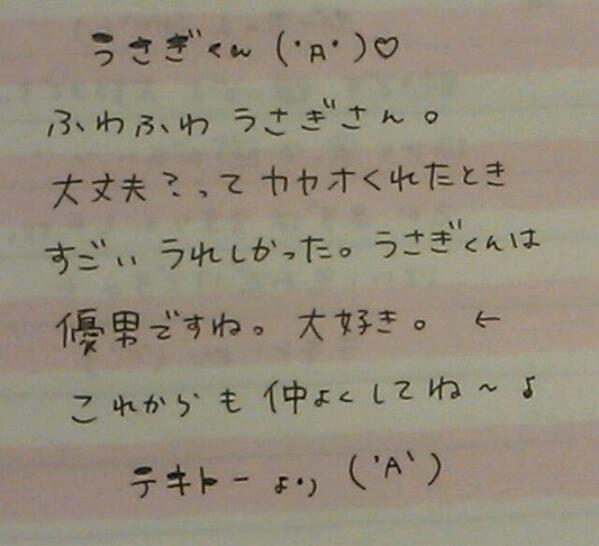 うさぎくん ('A')♡
ふわふわ うさぎさん。
大丈夫?って カカオくれたとき
すごい うれしかった。うさぎくんは
優男ですね。大好き。 ←
これからも 仲よくしてね〜♪
テキトーより ('A`)